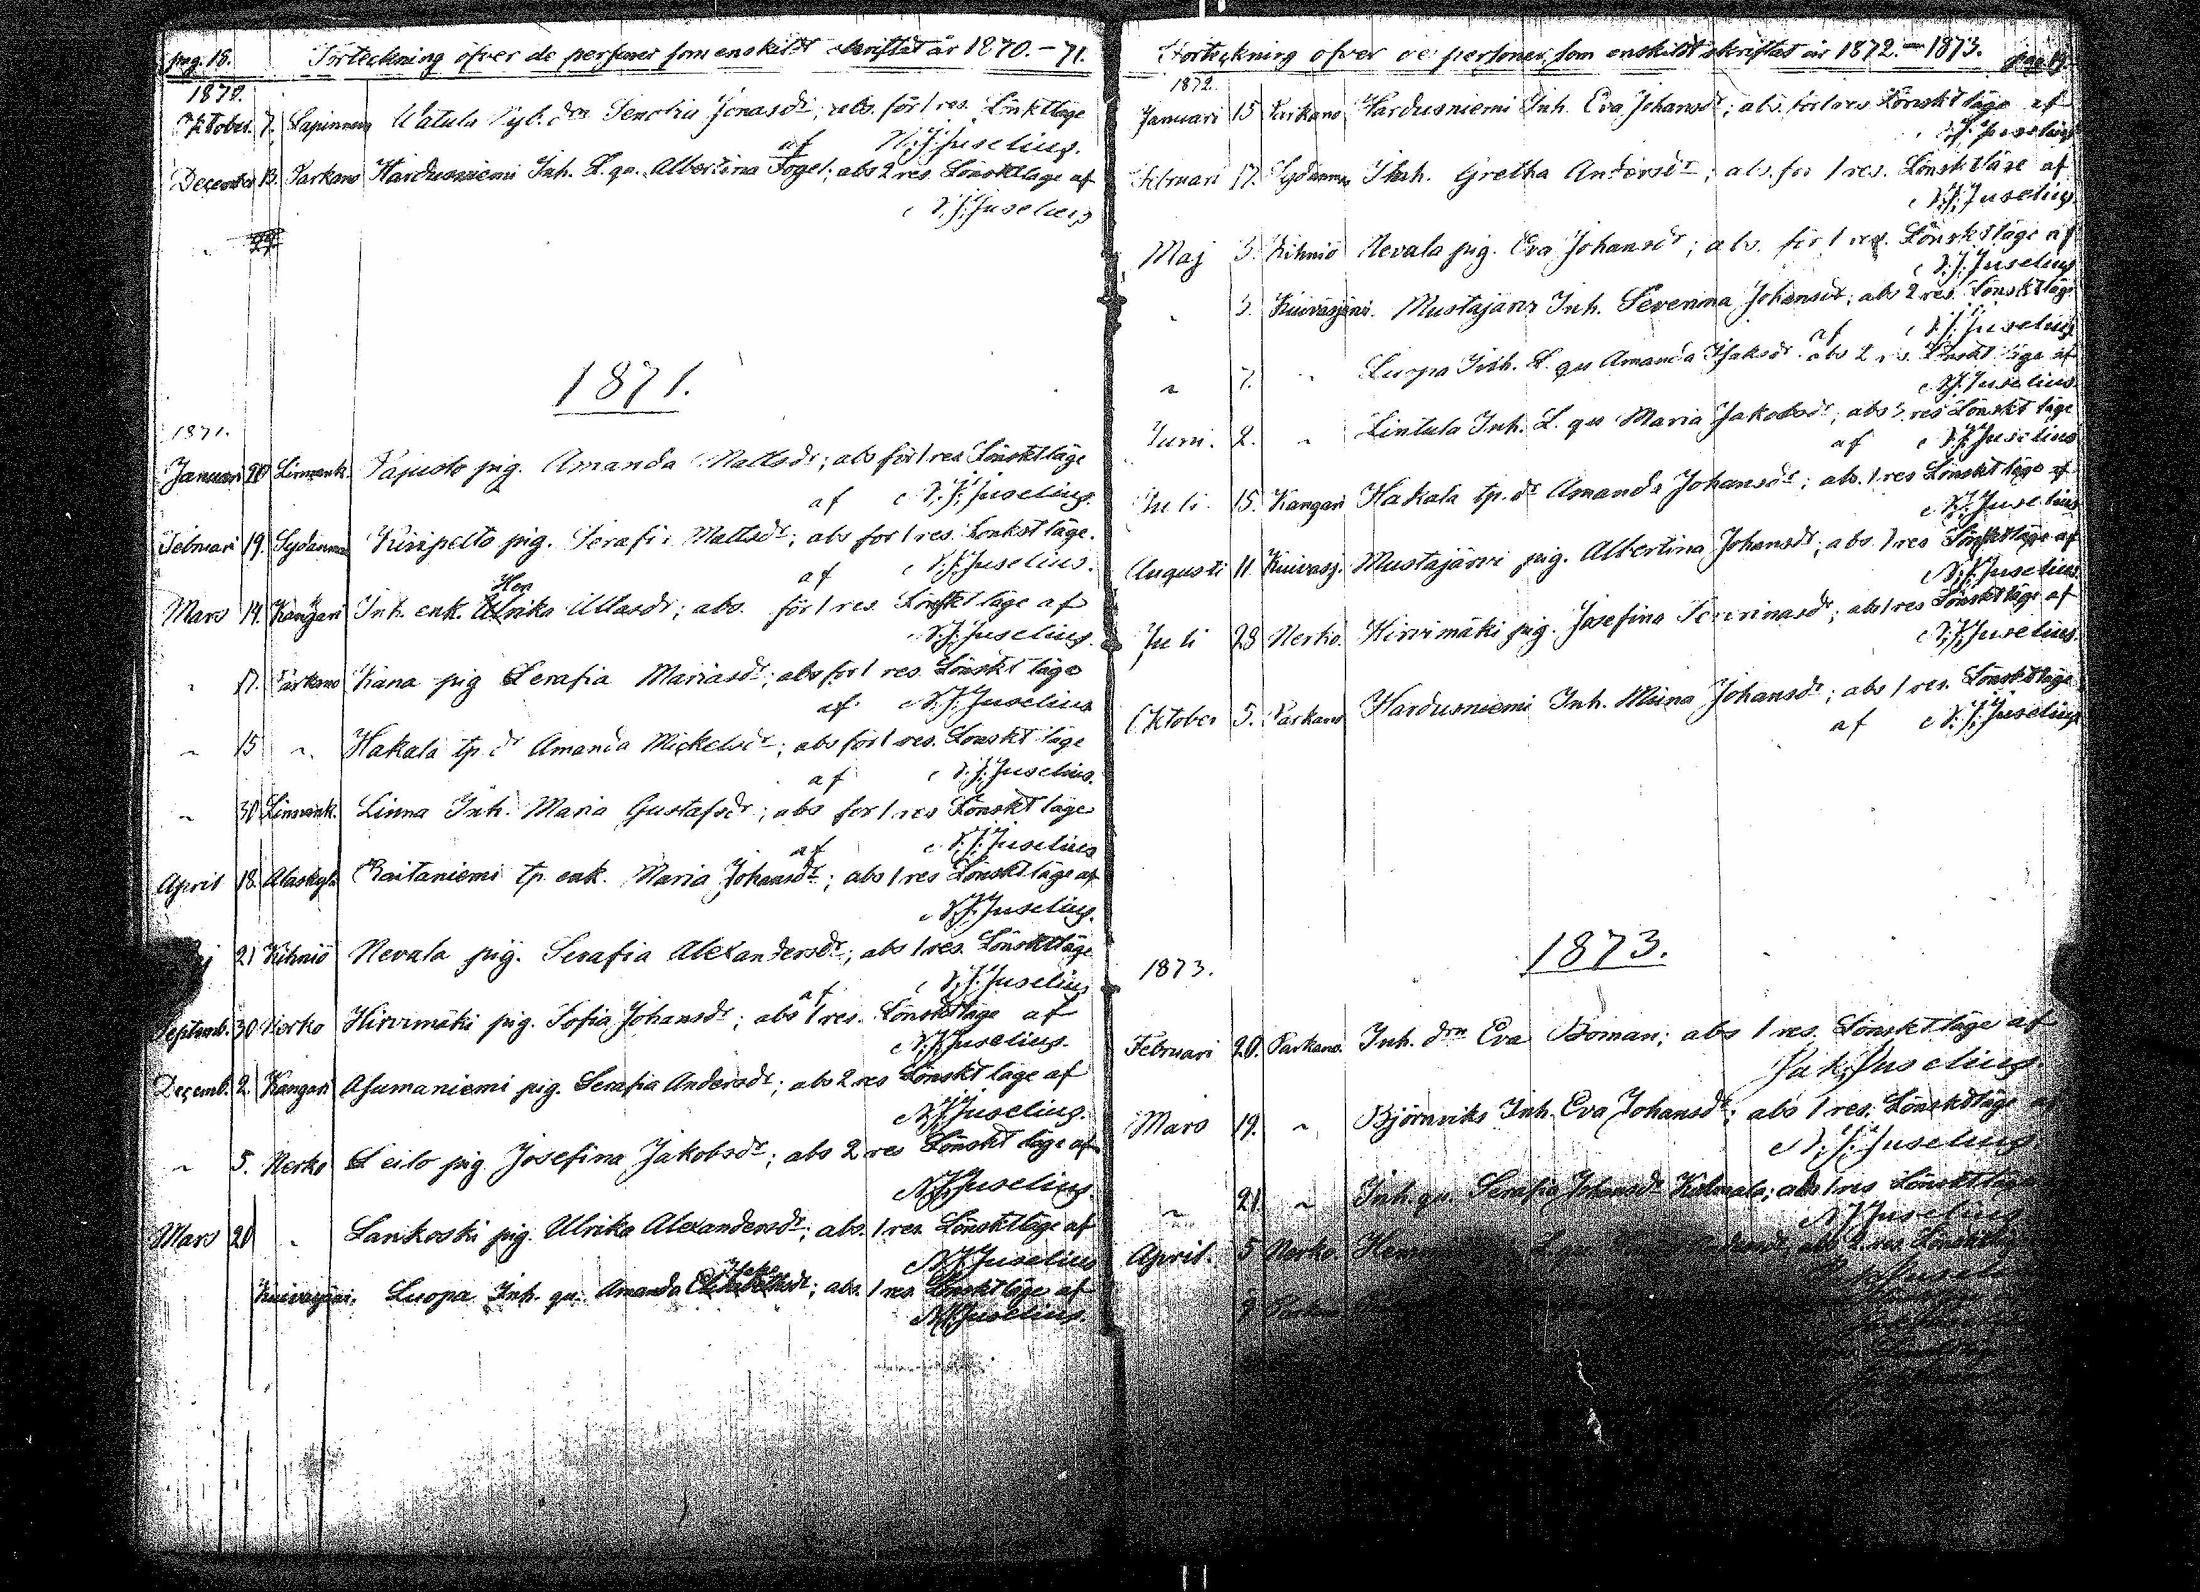 pag. 18. Förteckning öfver de personer som enskildt skriftat år 1870. - 71.
1870.
Oktober. 7. Lapinnem Watula Sjelf. drn Senobia Jonasdr; abs. för 1 res. Lönsktläge
af N. J. Juselius.
December 13. Parkano Hardusniemi Inh. L. qv. Albertina Fogel; abs 2 res. Lönsktläge af
N. J. Juselius
1871.
1871.
Januari 20 Linnank. Pajusto pig. Amanda Mattsdr; abs för 1 res Lönsktläge
af N. J. Juselius.
Februari 19. Sydänmaa Kiviperto pig. Serafia Mattsdr; abs för 1 res. Lönskt läge.
af N. J. Juselius.
Mars 14. Kangari Inh. enk. Ulrika Ullasdr; abs. för 1 res. Lönskt läge af
N. J. Juselius.
" 17. Parkano Kana pig Serafia Mariasdr; abs för 1 res. Lönskt läge
af N. J. Juselius
" 15 " Hakala tp. dr Amanda Mickelsdr; abs för 1 res. Lönskt läge
af N. J. Juselius.
" 30 Linnank. Linna Inh. Maria Gustafsdr; abs för 1 res Lönskt läge
af N. J. Juselius
April 18. Alaskylä Raitaniemi tp. enk. Maria Johansdr; abs 1 res Lönskt läge af
N. J. Juselius.
21 Kihniö Nevala pig. Serafia Alexandersdr; abs 1 res. Lönsktläge
af N. J. Juselius
Septemb. 30 Nerko Hirvimäki pig. Sofia Johansdr; abs 1 res. Lönsktläge af
N. J. Juselius.
Decemb. 2. Kangari Asumaniemi pig. Serafia Andersdr; abs 2 res Lönskt läge af
N. J. Juselius.
" 5. Nerko Leilo pig. Josefina Jakobsdr; abs 2 res Lönskt läge af
N. J. Juselius.
Mars 20 " Lankoski pig. Ulrika Alexandersdr; abs. 1 res. Lönsktläge af
N. J. Juselius
Kuivasjärvi. Luopa Inh. qv. Amanda Isaks dr; abs. 1 res Lönsktläge af
N. J. Juselius.
Förteckning öfver de personer, som enskildt skriftat år 1872. - 1873. pag 19.
1872.
Januari 15 Parkano Hardusniemi Inh. Eva Johansdr; abs. för 1 res Lönskt läge af
N. J. Juselius
Februari 17. Sydänmaa Inh. Gretha Andersdr; abs. för 1 res. Lönsktläge af
N. J. Juselius
Maj 3. Kihniö Nevala pig. Eva Johansdr; abs. för 1 res. Lönsktläge af
N. J. Juselius
" 3. Kuivasjärvi. Mustajärvi Inh. Severina Johansdr; abs 2 res. Lönsktläge
af N. J. Juselius
" 7. " Luopa Inh. L. qv Amanda Isaksdr. abs 2 res. Lönskt läge af
N. J. Juselius.
Juni. 2. " Lintula Inh. L. qv Maria Jakobsdr; abs res Lönskt läge
af N. J. Juselius
Juli. 15. Kangari Hakala tp. dr Amanda Johansdr; abs. 1 res Lönskt läge af
N. J. Juselius
Augusti 11 Kuivasj. Mustajärvi pig. Albertina Johansdr; abs. 1 res Lönsktläge af
N. J. Juselius.
Juli 28 Nerko. Hirvimäki pig. Josefina Severinasdr; abs 1 res Lönsktläge af
N. J. Juselius.
Oktober 5. Parkano Hardusniemi Inh. Miina Johansdr; abs 1 res. Lönsktläge
af N. J. Juselius
1873.
1873.
Februari 20. Parkano. Inh. drn Eva Boman; abs 1 res. Lönsktläge af
Jak. Juselius.
Mars 19. " Björnviks Inh. Eva Johansdr; abs 1 res. Lönsktläge af
N. J. Juselius
" 21. " Inh. qv. Serafia Johansdr Kulmala; abs 1 res Lönsktläge
N. J. Juselius
April. 5 Nerko.
9